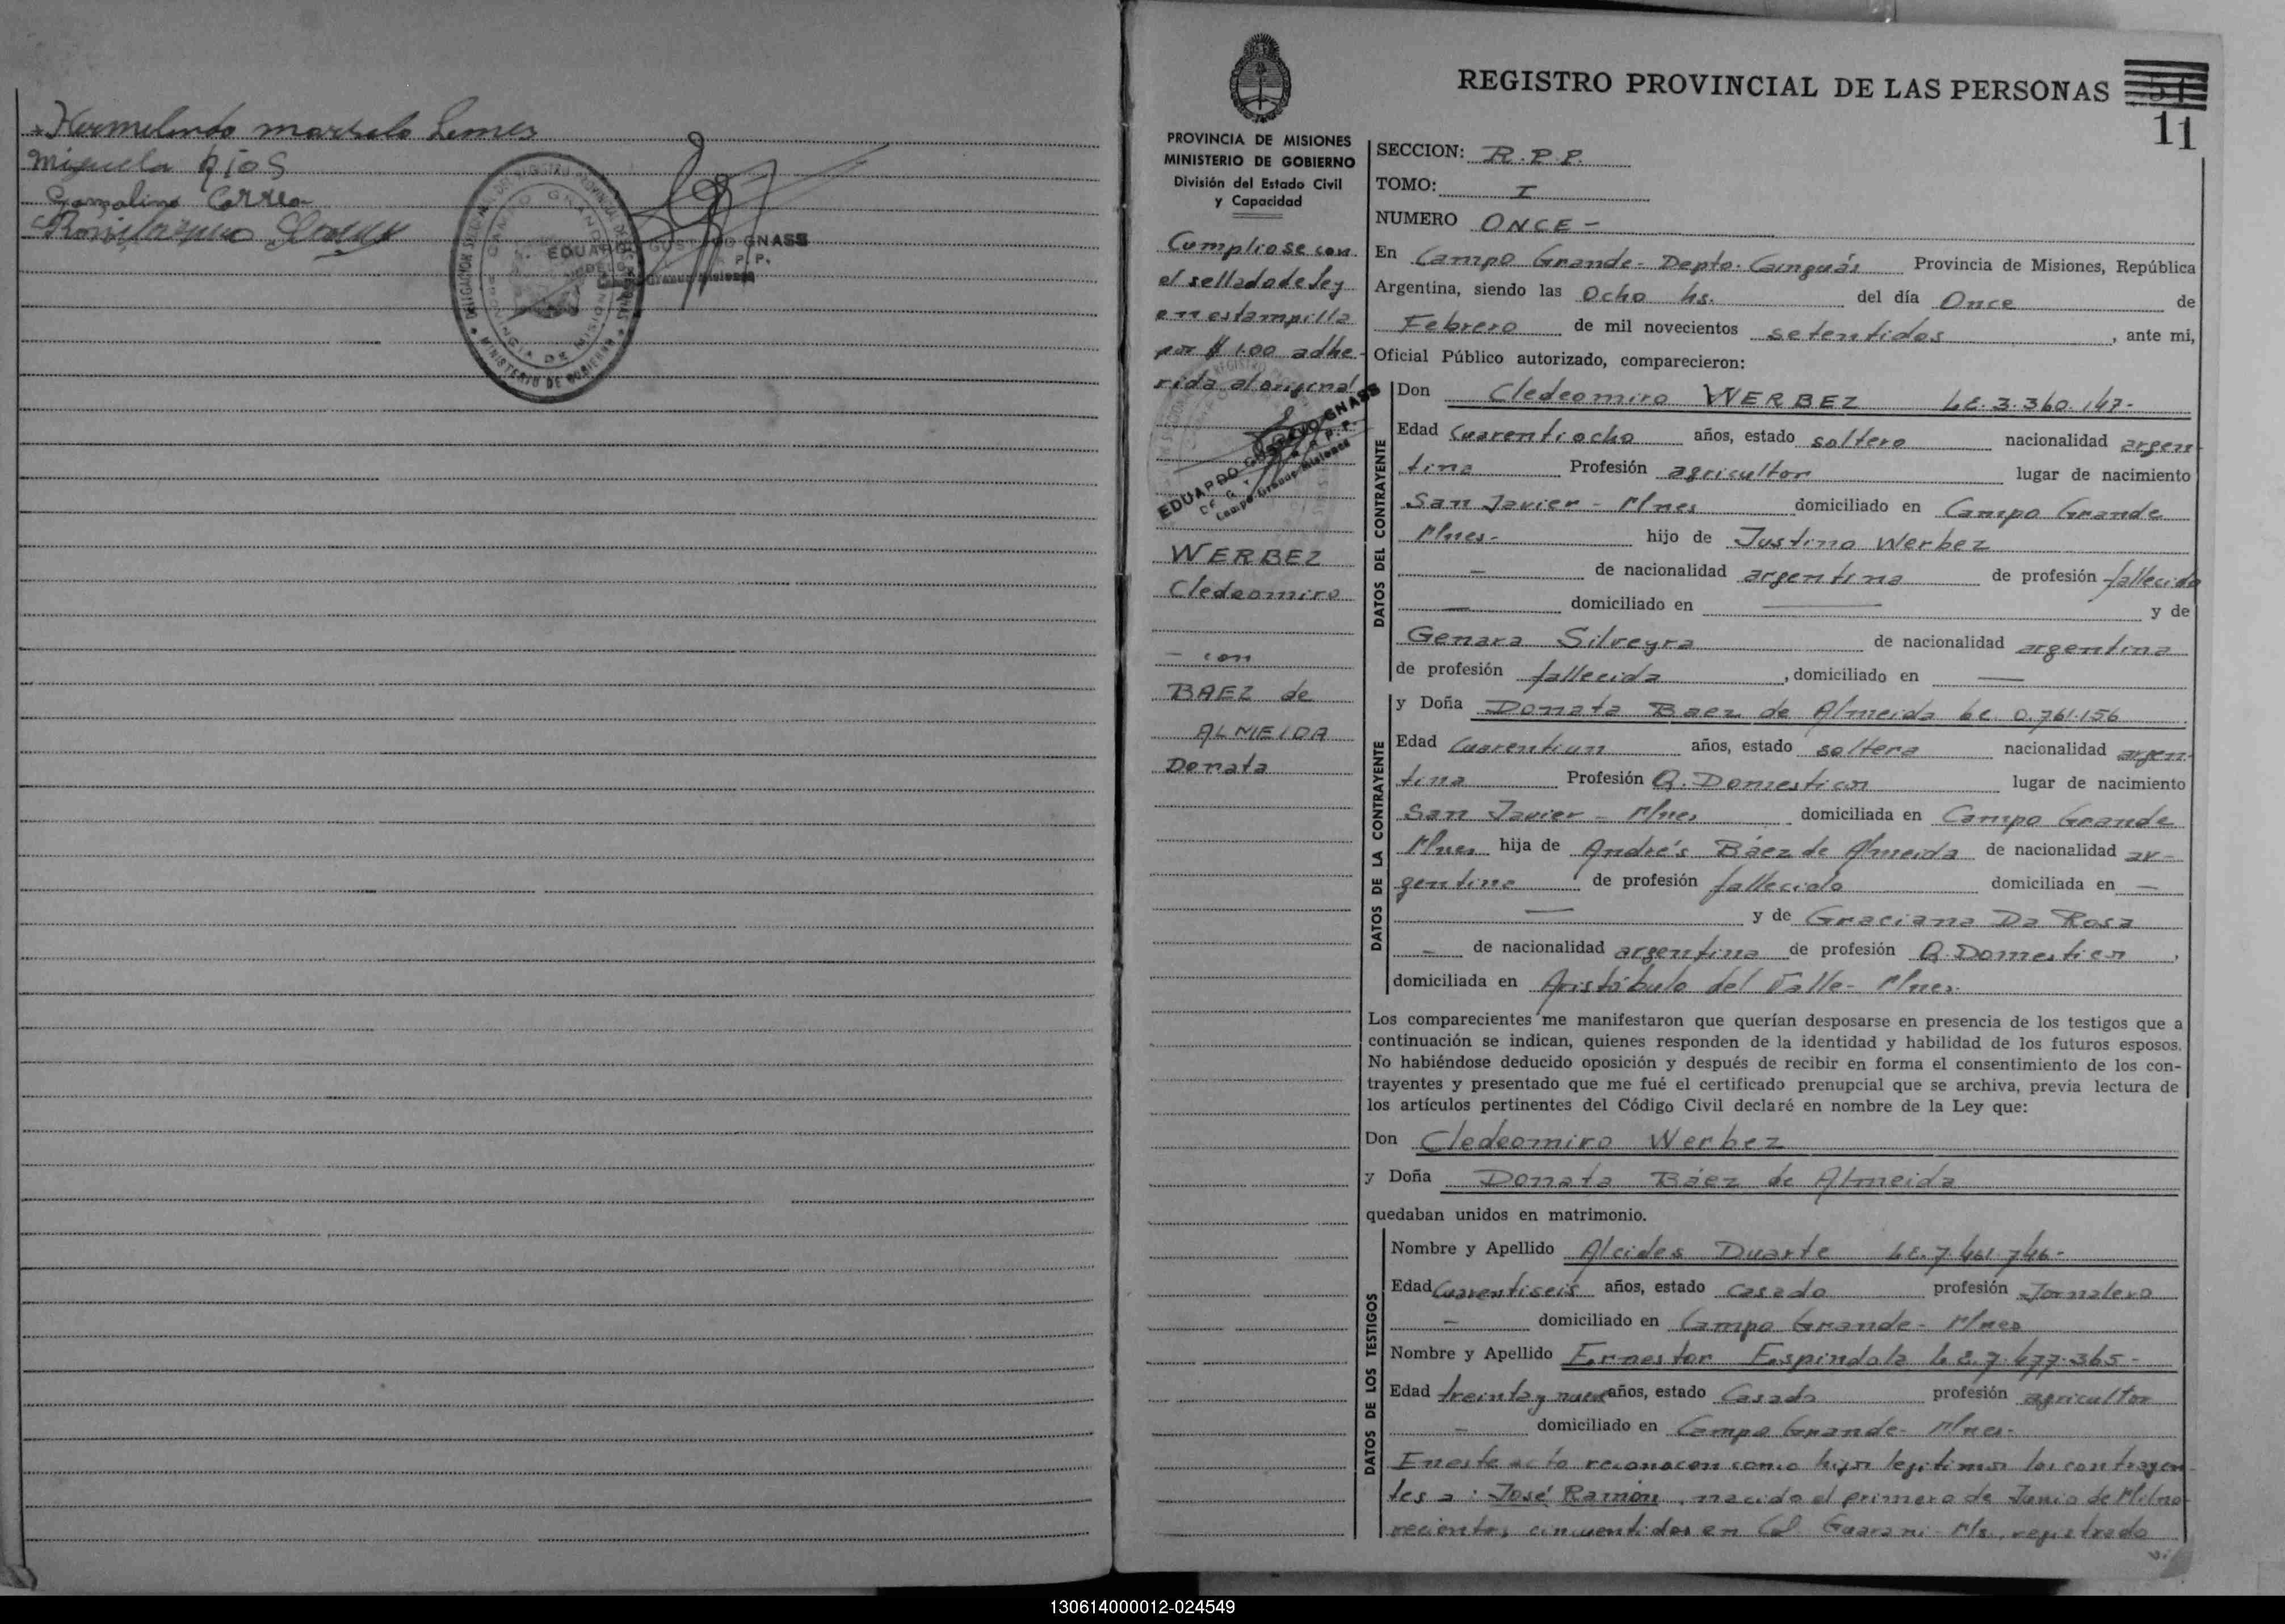 Hermelindo marselo Lemes
Miguela Rios
Correa
EDUARDO GUSTAVO GNASS
PROVINCIA DE MISIONES
MINISTERIO DE GOBIERNO
REGISTRO PROVINCIAL DE LAS PERSONAS
11
PROVINCIA DE MISIONES
MINISTERIO DE GOBIERNO
División del Estado Civil
y Capacidad
Cumpliose con
el sellado de ley
en estampilla
por $ 1.00 adhe-
rida al original
EDUARDO GUSTAVO GNASS
Campo Grande Misiones
WERBEZ
Cledeomiro
- con
BAEZ de
ALMEIDA
Donata
SECCION: R.P.P.
TOMO: I
NUMERO ONCE -
En Campo Grande - Depto. Cainguás Provincia de Misiones, República
Argentina, siendo las Ocho hs. del día Once de
Febrero de mil novecientos setentidos, ante mi,
Oficial Público autorizado, comparecieron:
DATOS DEL CONTRAYENTE
Don Cledeomiro WERBEZ L.E. 3.360.147-
Edad Cuarentiocho años, estado soltero nacionalidad argen-
tina Profesión agricultor lugar de nacimiento
San Javier - Mnes domiciliado en Campo Grande
Mnes- hijo de Justino Werbez
- de nacionalidad argentina de profesión fallecido
— domiciliado en — y de
Genara Silveyra de nacionalidad argentina
de profesión fallecida, domiciliado en —
DATOS DE LA CONTRAYENTE
y Doña Donata Baez de Almeida L.C. 0.761.156
Edad Cuarentiun años, estado soltera nacionalidad argen-
tina Profesión Q. Domesticos lugar de nacimiento
San Javier - Mnes domiciliada en Campo Grande
Mnes hija de Andrés Báez de Almeida de nacionalidad ar-
gentino de profesión fallecido domiciliada en —
— y de Graciana Da Rosa
- de nacionalidad argentina de profesión Q. Domesticos,
domiciliada en Aristóbulo del Valle - Mnes.
Los comparecientes me manifestaron que querían desposarse en presencia de los testigos que a
continuación se indican, quienes responden de la identidad y habilidad de los futuros esposos.
No habiéndose deducido oposición y después de recibir en forma el consentimiento de los con-
trayentes y presentado que me fué el certificado prenupcial que se archiva, previa lectura de
los artículos pertinentes del Código Civil declaré en nombre de la Ley que:
Don Cledeomiro Werbez
y Doña Donata Báez de Almeida
quedaban unidos en matrimonio.
DATOS DE LOS TESTIGOS
Nombre y Apellido Alcides Duarte L.E. 7.461.746-
Edad Cuarentiseis años, estado casado profesión Jornalero
- domiciliado en Campo Grande - Mnes
Nombre y Apellido Ernestor Espindola L.E. 7.477.365-
Edad treinta y nueve años, estado Casado profesión agricultor
- domiciliado en Campo Grande - Mnes-
En este acto reconocen como hijos legitimos los contrayen-
tes a: José Ramón, nacido el primero de Junio de Mil no-
vecientos cincuentidos en Col Guarani Ms, registrado
130614000012-024549